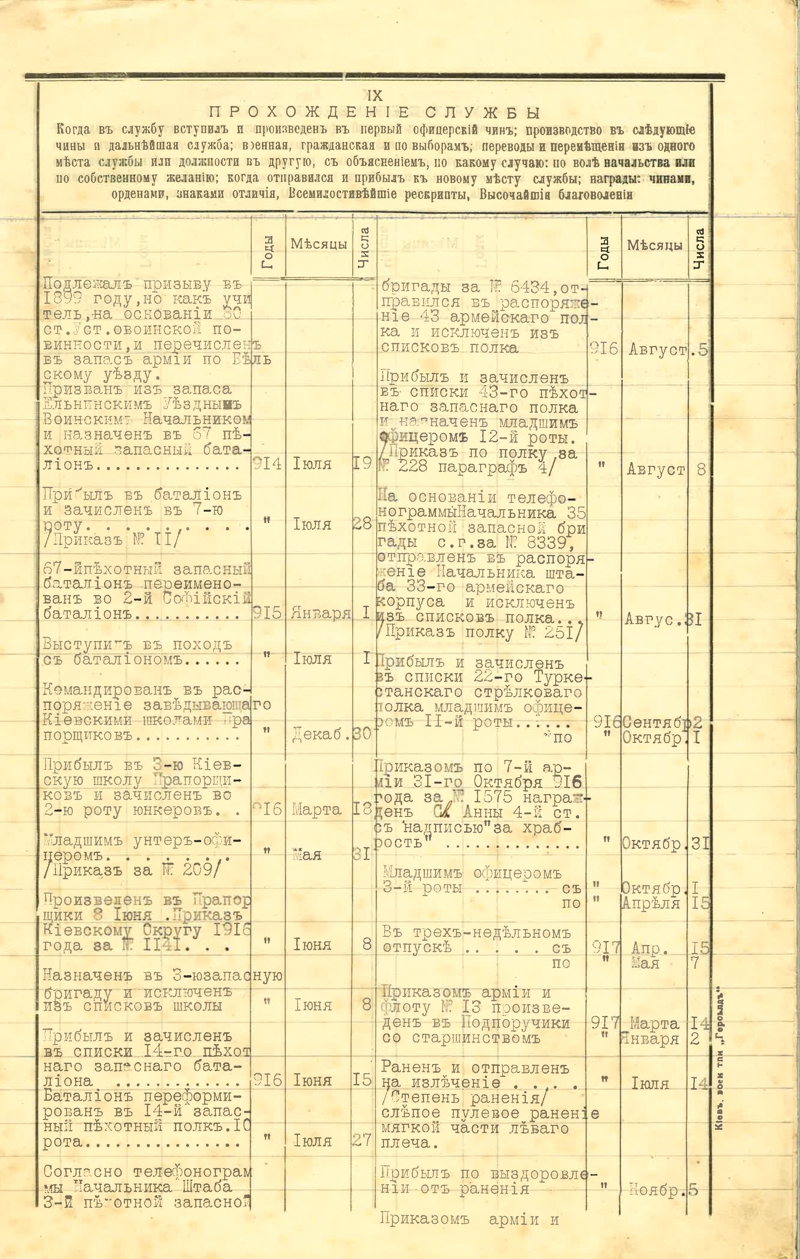 IX
ПРОХОЖДЕНІЕ СЛУЖБЫ
Когда въ службу вступилъ и произведенъ въ первый офицерскій чинъ; производство въ слѣдующіе
чины и дальнѣйшая служба; военная, гражданская и по выборамъ; переводы и перемѣщенія изъ одного
мѣста службы или должности въ другую, съ объясненіемъ, по какому случаю: по волѣ начальства или
по собственному желанію; когда отправился и прибылъ къ новому мѣсту службы; награды: чинами,
орденами, знаками отличія, Всемилостивѣйшіе рескрипты, Высочайшія благоволенія
Годы Мѣсяцы Числа
Подлежалъ призыву въ
1899 году,но какъ учи
тель,на основаніи 80
ст.Уст.овоинской по-
винности,и перечисленъ
въ запасъ арміи по Бѣль
скому уѣзду.
Призванъ изъ запаса
Ельнинскимъ Уѣзднымъ
Воинскимъ Начальником
и назначенъ въ 67 пѣ-
хотный запасный бата-
ліонъ............... 914 Іюля 19
Прибылъ въ баталіонъ
и зачисленъ въ 7-ю
роту. . . . . . . . . " Іюля 28
/Приказъ № II/
67-йпѣхотный запасный
баталіонъ переимено-
ванъ во 2-й Софійскій
баталіонъ........... 915 Января I
Выступилъ въ походъ
съ баталіономъ...... " Іюля I
Командированъ въ рас-
поряженіе завѣдывающаго
Кіевскими школами Пра
порщиковъ........... " Декаб. 30
Прибылъ въ 3-ю Кіев-
скую школу Прапорщи-
ковъ и зачисленъ во
2-ю роту юнкеровъ. . 916 Марта 13
Младшимъ унтеръ-офи-
церомъ. . . . . . . " Мая 31
/Приказъ за № 209/
Произведенъ въ Прапор
щики 8 Іюня .Приказъ
Кіевскому Округу 1916
года за № II41. . . " Іюня 8
Назначенъ въ 3-юзапасную
бригаду и исключенъ
изъ списковъ школы " Іюня 8
Прибылъ и зачисленъ
въ списки I4-го пѣхот
наго запаснаго бата-
ліона ............. 916 Іюня 15
Баталіонъ переформи-
рованъ въ I4-й запас-
ный пѣхотный полкъ.IO
рота................ " Іюля 27
Согласно телефонограм
мы Начальника Штаба
3-й пѣхотной запасной
Годы Мѣсяцы Числа
бригады за № 6434,от-
правился въ распоряже-
ніе 43 армейскаго пол-
ка и исключенъ изъ
списковъ полка 916 Август .5
Прибылъ и зачисленъ
въ списки 43-го пѣхот-
наго запаснаго полка
и назначенъ младшимъ
офицеромъ 12-й роты.
/Приказъ по полку за
№ 228 параграфъ 4/ " Август 8
На основаніи телефо-
нограммыНачальника 35
пѣхотной запасной бри
гады с.г.за № 8339,
отправленъ въ распоря-
женіе Начальника шта-
ба 33-го армейскаго
корпуса и исключенъ
изъ списковъ полка... " Авгус. 31
/Приказъ полку № 251/
Прибылъ и зачисленъ
въ списки 22-го Турке-
станскаго стрѣлковаго
полка младшимъ офице-
ромъ II-й роты...... 916 Сентябр 2
по " Октябр. I
Приказомъ по 7-й ар-
міи 31-го Октября 916
года за № 1575 награж-
денъ Анны 4-й ст.
съ надписью"за храб-
рость" .............. " Октябр. 31
Младшимъ офицеромъ
3-й роты ........ съ " Октябр. I
по " Апрѣля 15
Въ трехъ-недѣльномъ
отпускѣ . . . . . съ 917 Апр. 15
по " Мая 7
Приказомъ арміи и
флоту № 13 произве-
денъ въ Подпоручики 917 Марта 14
со старшинствомъ " Января 2
Раненъ и отправленъ
на излѣченіе . . . . . " Іюля 14
/Степень раненія/
слѣпое пулевое раненіе
мягкой части лѣваго
плеча.
Прибылъ по выздоровле-
ніи отъ раненія " Ноябр. 5
Приказомъ арміи и